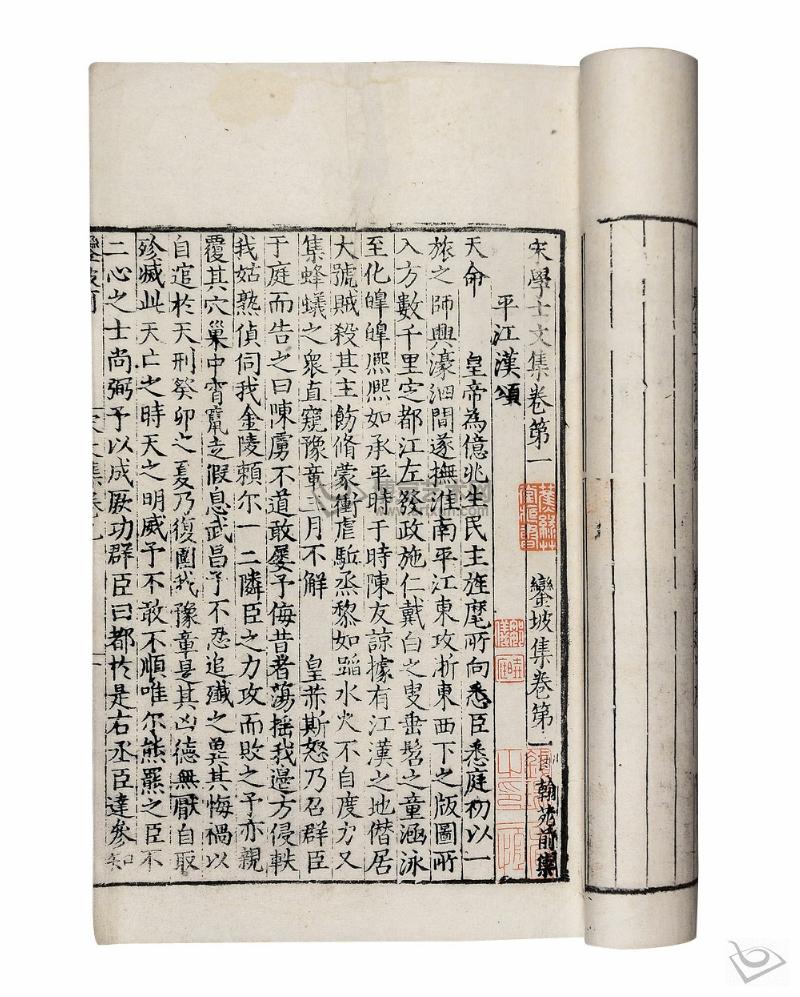 宋學士文集卷第一 鑾坡集卷第一 即翰苑前集
平江漢頌
天命 皇帝為億兆生民主旌麾所向悉臣悉庭初以一
旅之師興濠泗間遂撫淮南平江東攻浙東西下之版圖所
入方數千里定都江左發政施仁戴白之叟垂髫之童涵泳
至化皥皥熙熙如承平時于時陳友諒據有江漢之地僭居
大號賊殺其主飭脩蒙衝虐駈烝黎如蹈水火不自度力又
集蜂蟻之衆直窺豫章三月不解 皇赫斯怒乃召群臣
于庭而告之曰陳虜不道敢屡予侮昔者蕩揺我邉方侵軼
我姑熟偵伺我金陵頼尔一二隣臣之力攻而敗之予亦親
覆其穴巢中宵竄走假息武昌予不忍追殱之兾其悔禍以
自逭於天刑癸卯之夏乃復圍我豫章是其凶德無厭自取
殄滅此天亡之時天之明威予不敢不順唯尔熊羆之臣不
二心之士尚弼予以成厥功群臣曰都於是右丞臣達參知